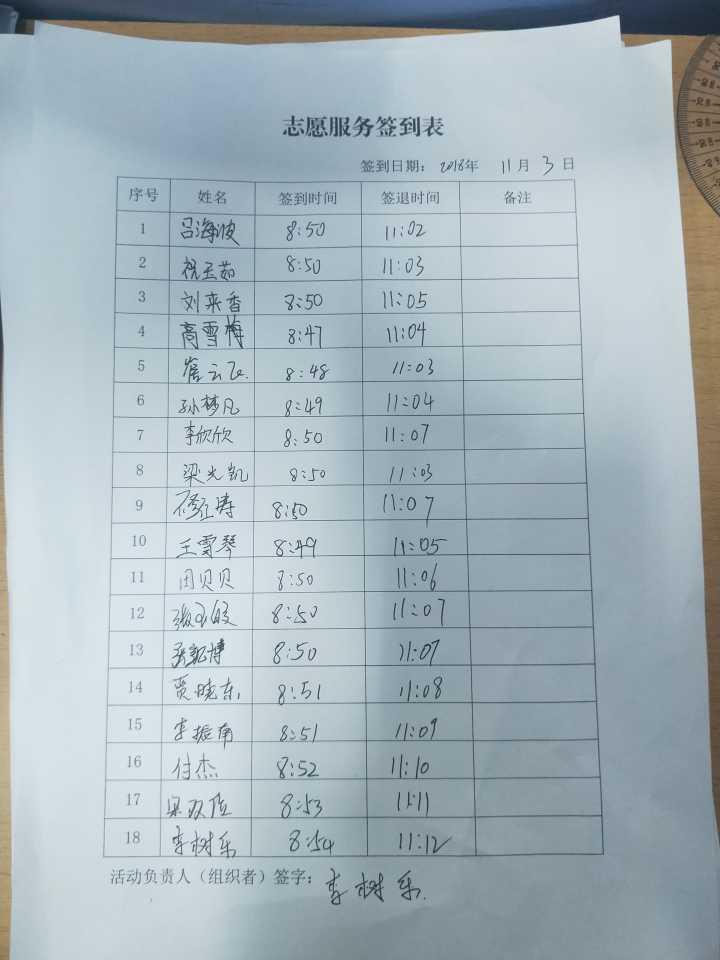 志愿服务签到表
签到日期: 2018年 11月 3日
序号 姓名 签到时间 签退时间 备注
1 吕海波 8:50 11:02
2 祝玉茹 8:50 11:03
3 刘来香 8:50 11:05
4 高雪梅 8:47 11:04
5 崔云飞 8:48 11:03
6 孙梦凡 8:49 11:04
7 李欣欣 8:50 11:07
8 梁光凯 8:50 11:03
9 8:50 11:07
10 王雪琴 8:49 11:05
11 田贝贝 8:50 11:06
12 8:50 11:07
13 8:50 11:07
14 贾晓东 8:51 11:08
15 李振南 8:51 11:09
16 付杰 8:52 11:10
17 8:53 11:11
18 李树乐 8:54 11:12
活动负责人（组织者）签字: 李树乐